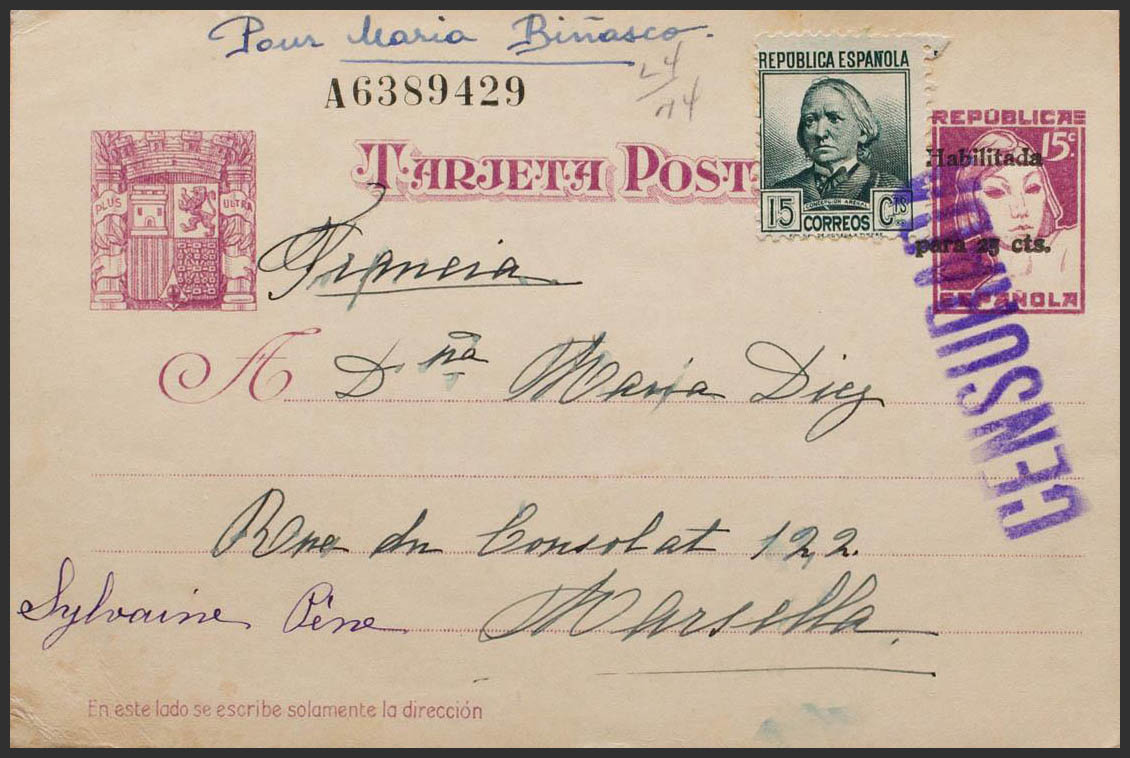 Pour Maria Biñasco.
A6389429
REPÚBLICA ESPAÑOLA
CONCEPCION ARENAL
15 CORREOS Cts
REPÚBLICA
15c.
Habilitada
para 25 cts.
ESPAÑOLA
TARJETA POST
PLUS ULTRA
Francia
A Dña Maria Diez
Rue du Consolat 122.
Sylvaine Pène
Marsella.
CENSU
En este lado se escribe solamente la dirección